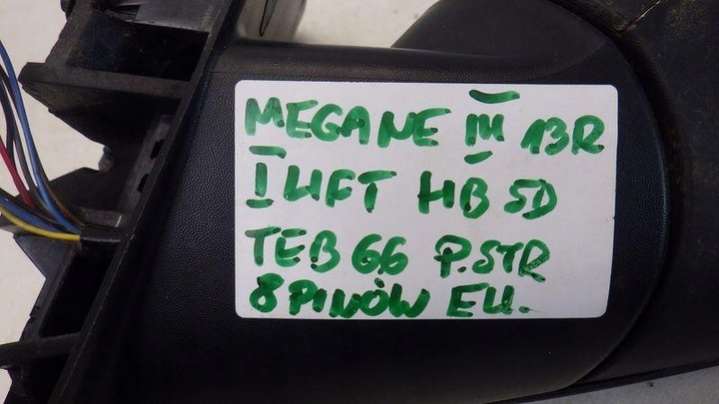 MEGANE III 13R
I LIFT HB 5D
TEB66 P.STR
8 PINÓW EU.